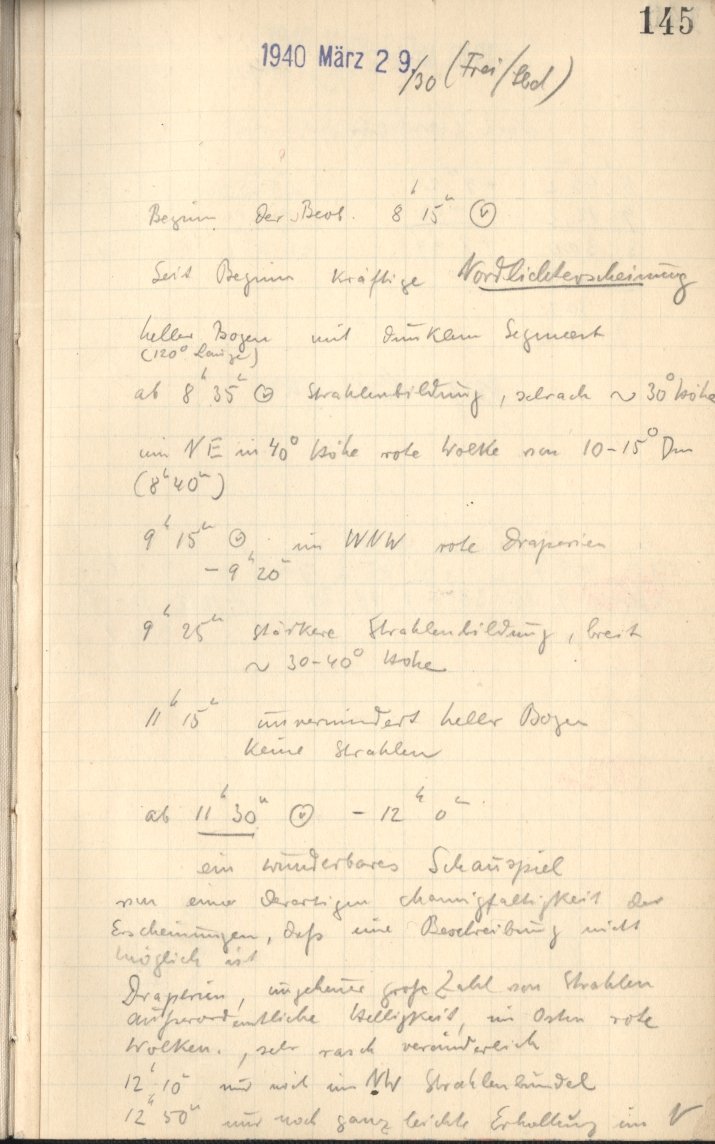 145
1940 März 29./30 (Frei/Sbd)
Beginn der Beob. 8h 15m
Seit Beginn kräftige Nordlichterscheinung
heller Bogen mit dunklem Segment
(120° Länge)
ab 8h 35m Strahlenbildung, schrach ~ 30° Höhe
im NE in 40° Höhe rote Wolke von 10-15° Dm
(8h 40m)
9h 15m im WNW rote Draperien
- 9h 20m
9h 25m stärkere Strahlenbildung, breit
~ 30-40° Höhe
11h 15m unvermindert heller Bogen
keine Strahlen
ab 11h 30m - 12h 0m
ein wunderbares Schauspiel
von einer derartigen Mannigfaltigkeit der
Erscheinungen, daß eine Beschreibung nicht
möglich ist
Draperien, ungeheuer große Zahl von Strahlen
außerordentliche Helligkeit, im Osten rote
Wolken, sehr rasch veränderlich
12h 10m nur noch im NW Strahlenbündel
12h 50m nur noch ganz leichte Erhellung im N